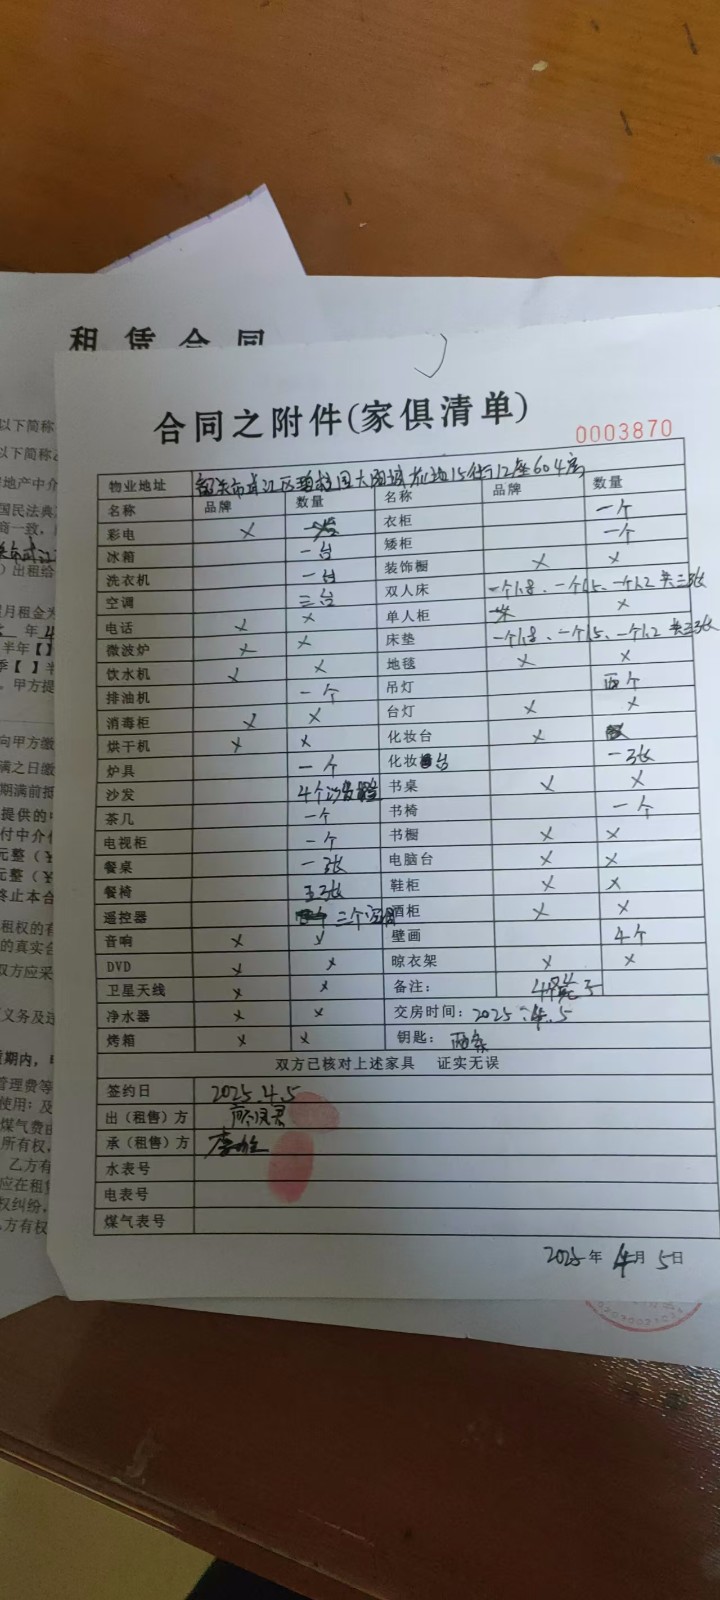 租赁合同
合同之附件(家俱清单)
0003870
物业地址 韶关市武江区碧桂园太阳城 15街12座604房
名称 品牌 数量 名称 品牌 数量
彩电 × 衣柜 一个
冰箱 一台 矮柜 一个
洗衣机 一台 装饰橱 × ×
空调 三台 双人床 一个1.8、一个1.5、一个1.2 共三张
电话 × × 单人柜 ×
微波炉 × × 床垫 一个1.8、一个1.5、一个1.2 共三张
饮水机 × × 地毯 × ×
排油机 一个 吊灯 两个
消毒柜 × × 台灯 × ×
烘干机 × × 化妆台 ×
炉具 一个 化妆台 一张
沙发 4个沙发 书桌 × ×
茶几 一个 书椅 一个
电视柜 一个 书橱 × ×
餐桌 一张 电脑台 × ×
餐椅 五张 鞋柜 × ×
遥控器 三个空调 酒柜 × ×
音响 × × 壁画 4个
DVD × × 晾衣架 × ×
卫星天线 × × 备注: 4凳子
净水器 × × 交房时间: 2025.4.5
烤箱 × × 钥匙: 两条
双方已核对上述家具 证实无误
签约日 2025.4.5
出(租售)方
承(租售)方 李
水表号
电表号
煤气表号
2025年4月5日
以下简称
以下简称
国民法典
商一致,
出租给
月租金为
年
半年【】
季【】半
甲方提
向甲方缴
满之日缴
期满前抵
提供的
付中介
元整(¥
元整(¥
终止本合
租权的有
的真实合
双方应采
义务及违
期内,
管理费等
使用:及
煤气费由
所有权,
乙方有
应在租
权纠纷,
方有权